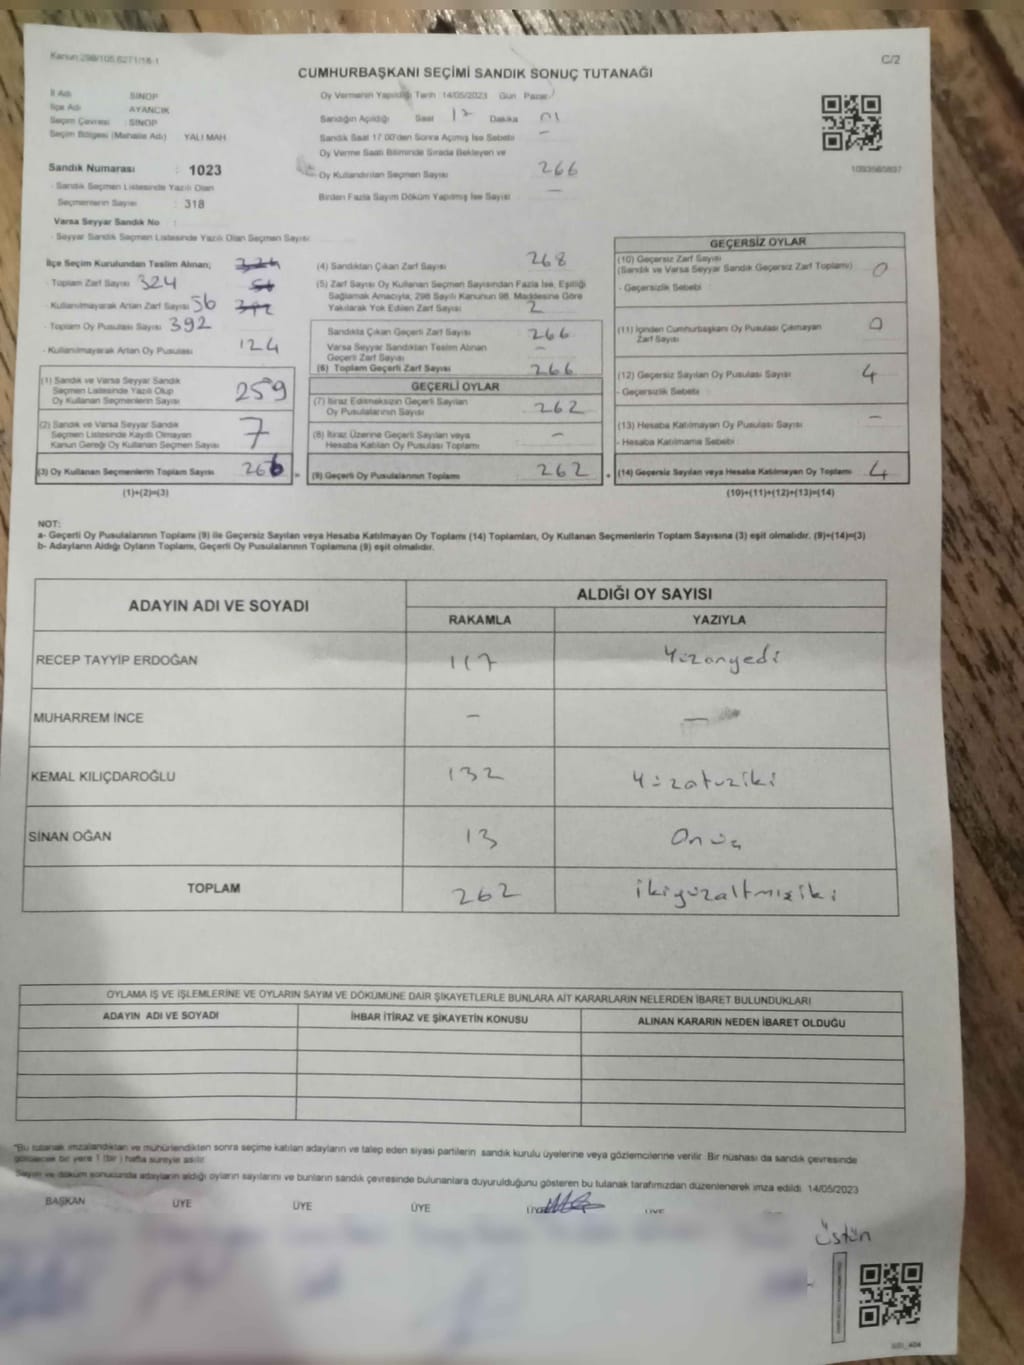 Kanun:298/105,6271/16-1
C/2
CUMHURBAŞKANI SEÇİMİ SANDIK SONUÇ TUTANAĞI
İl Adı : SİNOP
İlçe Adı : AYANCIK
Seçim Çevresi : SİNOP
Seçim Bölgesi (Mahalle Adı) : YALI MAH.
Sandık Numarası : 1023
- Sandık Seçmen Listesinde Yazılı Olan
Seçmenlerin Sayısı : 318
Varsa Seyyar Sandık No :
- Seyyar Sandık Seçmen Listesinde Yazılı Olan Seçmen Sayısı:
Oy Vermenin Yapıldığı Tarih 14/05/2023 Gün Pazar
Sandığın Açıldığı Saat 17 Dakika 01
Sandık Saat 17:00'den Sonra Açılmış İse Sebebi –
Oy Verme Saati Bitiminde Sırada Bekleyen ve
Oy Kullandırılan Seçmen Sayısı 266
Birden Fazla Sayım Döküm Yapılmış İse Sayısı –
1093560897
İlçe Seçim Kurulundan Teslim Alınan;
- Toplam Zarf Sayısı 324
- Kullanılmayarak Artan Zarf Sayısı 56
- Toplam Oy Pusulası Sayısı 392
- Kullanılmayarak Artan Oy Pusulası 124
(1) Sandık ve Varsa Seyyar Sandık
Seçmen Listesinde Yazılı Olup
Oy Kullanan Seçmenlerin Sayısı 259
(2) Sandık ve Varsa Seyyar Sandık
Seçmen Listesinde Kayıtlı Olmayan
Kanun Gereği Oy Kullanan Seçmen Sayısı 7
(3) Oy Kullanan Seçmenlerin Toplam Sayısı 266
(1)+(2)=(3)
(4) Sandıktan Çıkan Zarf Sayısı 268
(5) Zarf Sayısı Oy Kullanan Seçmen Sayısından Fazla İse, Eşitliği
Sağlamak Amacıyla, 298 Sayılı Kanunun 98. Maddesine Göre
Yakılarak Yok Edilen Zarf Sayısı 2
Sandıkta Çıkan Geçerli Zarf Sayısı 266
Varsa Seyyar Sandıktan Teslim Alınan
Geçerli Zarf Sayısı –
(6) Toplam Geçerli Zarf Sayısı 266
GEÇERLİ OYLAR
(7) İtiraz Edilmeksizin Geçerli Sayılan
Oy Pusulalarının Sayısı 262
(8) İtiraz Üzerine Geçerli Sayılan veya
Hesaba Katılan Oy Pusulası Toplamı –
(9) Geçerli Oy Pusulalarının Toplamı 262
GEÇERSİZ OYLAR
(10) Geçersiz Zarf Sayısı
(Sandık ve Varsa Seyyar Sandık Geçersiz Zarf Toplamı) 0
- Geçersizlik Sebebi :
(11) İçinden Cumhurbaşkanı Oy Pusulası Çıkmayan
Zarf Sayısı 0
(12) Geçersiz Sayılan Oy Pusulası Sayısı 4
- Geçersizlik Sebebi :
(13) Hesaba Katılmayan Oy Pusulası Sayısı –
- Hesaba Katılmama Sebebi :
(14) Geçersiz Sayılan veya Hesaba Katılmayan Oy Toplamı 4
(10)+(11)+(12)+(13)=(14)
NOT:
a- Geçerli Oy Pusulalarının Toplamı (9) ile Geçersiz Sayılan veya Hesaba Katılmayan Oy Toplamı (14) Toplamları, Oy Kullanan Seçmenlerin Toplam Sayısına (3) eşit olmalıdır. (9)+(14)=(3)
b- Adayların Aldığı Oyların Toplamı, Geçerli Oy Pusulalarının Toplamına (9) eşit olmalıdır.
ADAYIN ADI VE SOYADI
ALDIĞI OY SAYISI
RAKAMLA YAZIYLA
RECEP TAYYİP ERDOĞAN 117 Yüzonyedi
MUHARREM İNCE – –
KEMAL KILIÇDAROĞLU 132 Yüzotuziki
SİNAN OĞAN 13 Onüç
TOPLAM 262 İkiyüzaltmışiki
OYLAMA İŞ VE İŞLEMLERİNE VE OYLARIN SAYIM VE DÖKÜMÜNE DAİR ŞİKAYETLERLE BUNLARA AİT KARARLARIN NELERDEN İBARET BULUNDUKLARI
ADAYIN ADI VE SOYADI İHBAR İTİRAZ VE ŞİKAYETİN KONUSU ALINAN KARARIN NEDEN İBARET OLDUĞU
"Bu tutanak imzalandıktan ve mühürlendikten sonra seçime katılan adayların ve talep eden siyasi partilerin sandık kurulu üyelerine veya gözlemcilerine verilir. Bir nüshası da sandık çevresinde
görülecek bir yere 1 (bir) hafta süreyle asılır.
Sayım ve döküm sonucunda adayların aldığı oyların sayılarını ve bunların sandık çevresinde bulunanlara duyurulduğunu gösteren bu tutanak tarafımızdan düzenlenerek imza edildi. 14/05/2023
BAŞKAN ÜYE ÜYE ÜYE ÜYE ÜYE
Üstün